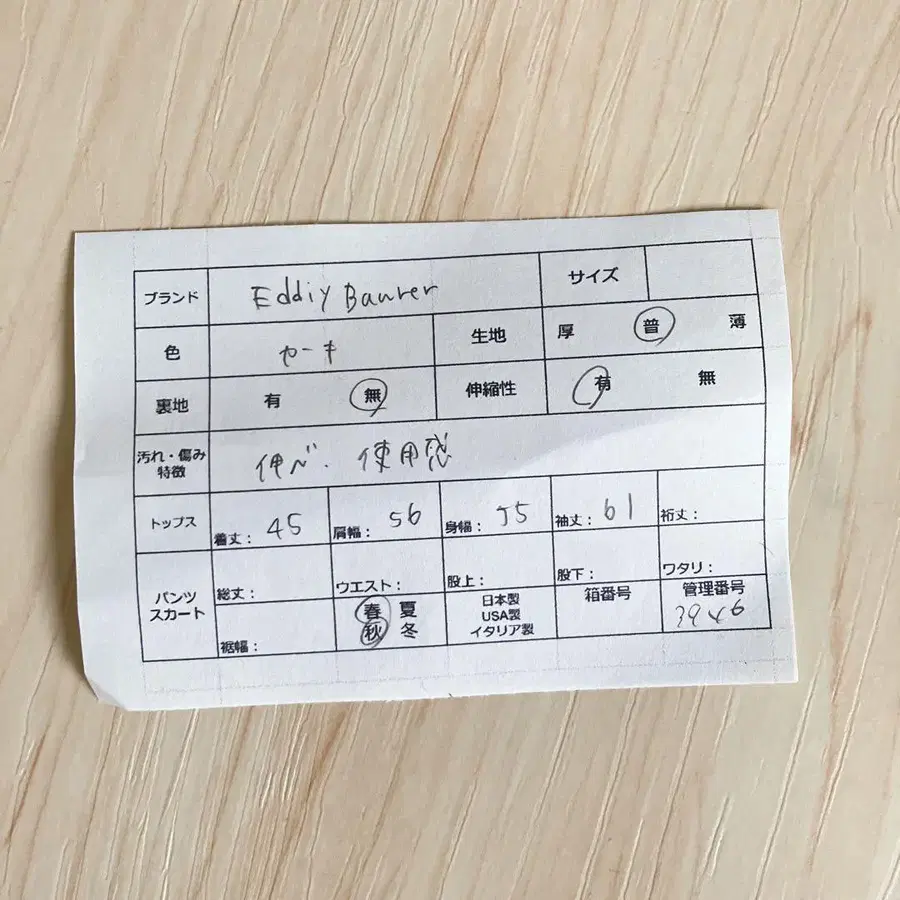 ブランド Eddiy Baurer サイズ
色 カーキ 生地 厚 普 薄
裏地 有 無 伸縮性 有 無
汚れ・傷み
特徴 伸べ、使用感
トップス 着丈: 45 肩幅: 56 身幅: 55 袖丈: 61 裄丈:
パンツ
スカート 総丈: ウエスト: 股上: 股下: ワタリ:
裾幅: 春 夏
秋 冬
日本製
USA製
イタリア製
箱番号
管理番号